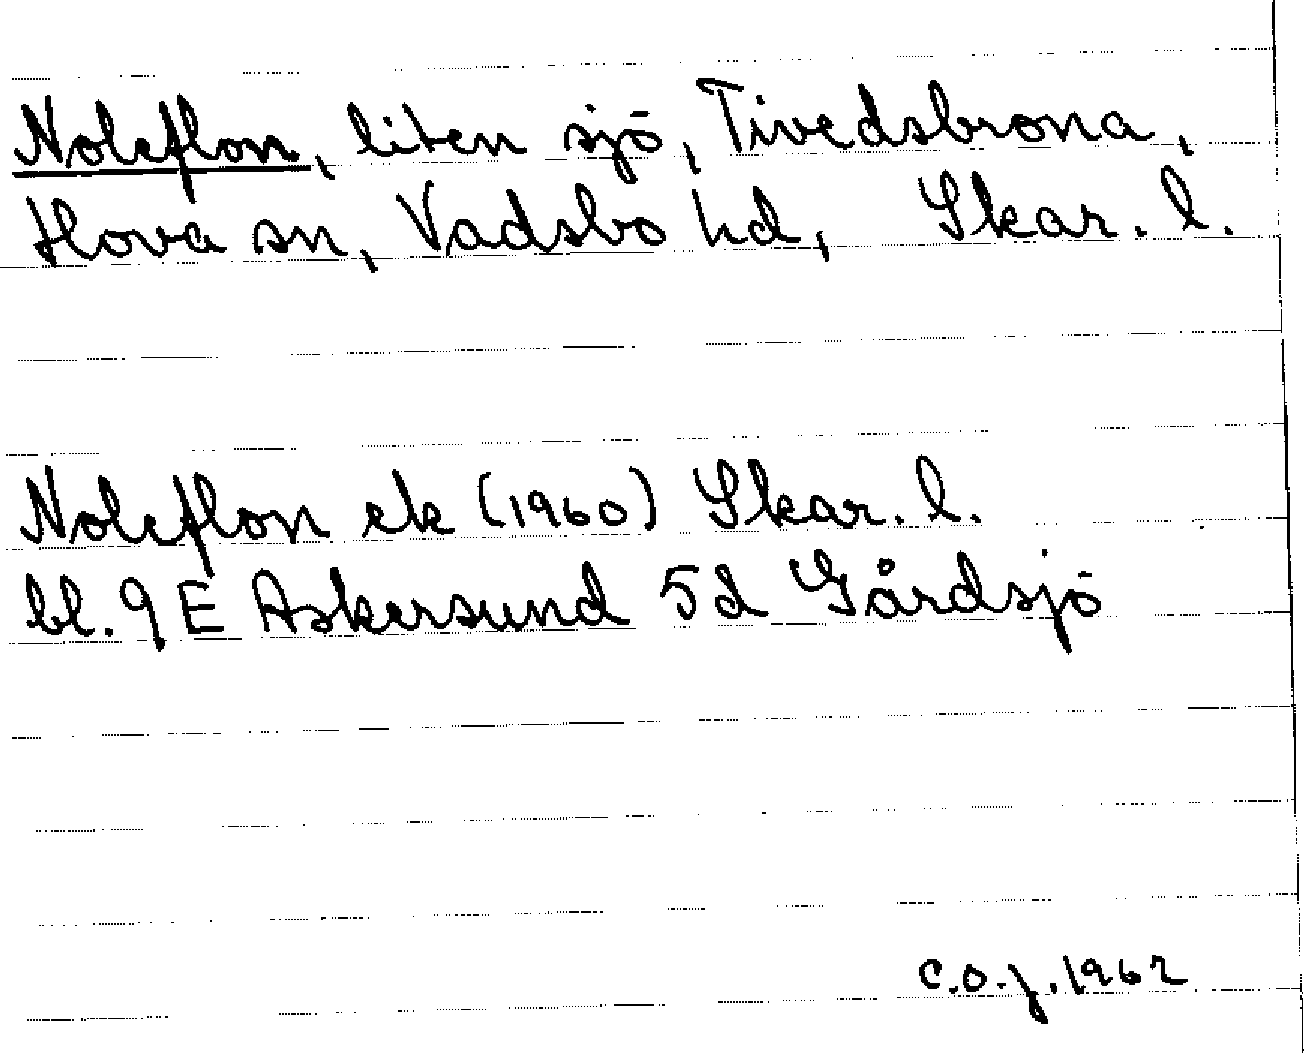 Noleflon, liten sjö, Tivedsbrona,
Hova sn, Vadsbo hd, Skar. l.
Noleflon ek (1960) Skar. l.
bl. 9 E Askersund 5d Gårdsjö
C.O.J. 1962